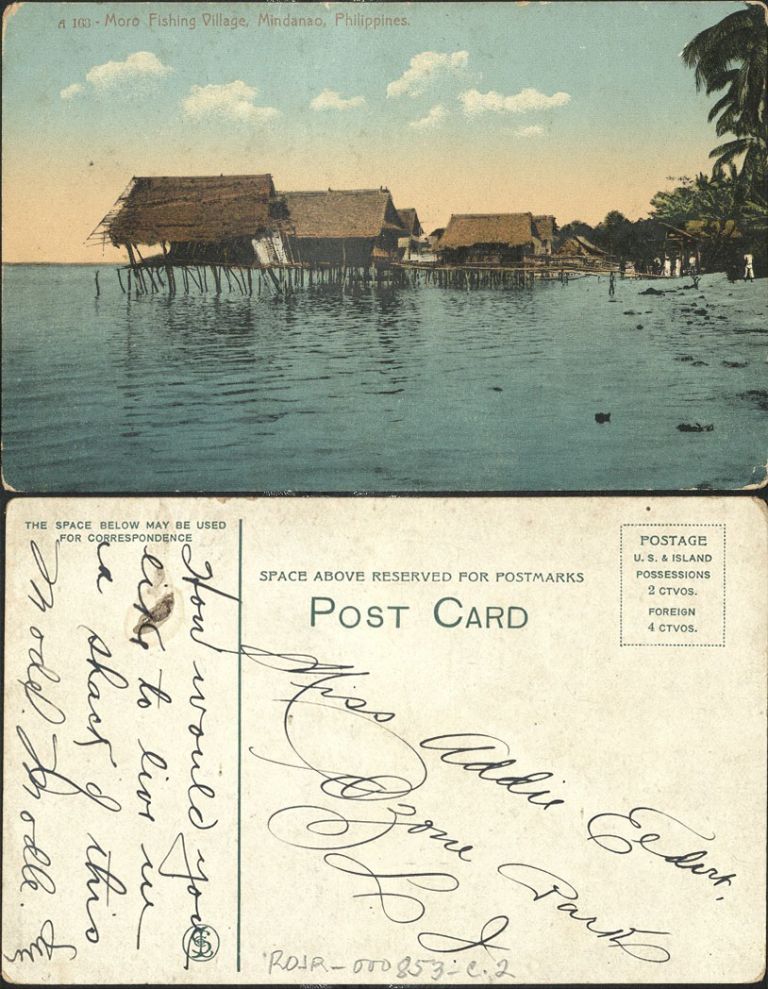 A 163 - Moro Fishing Village, Mindanao, Philippines.
THE SPACE BELOW MAY BE USED
FOR CORRESPONDENCE
How would you
like to live in
a shack of this
Model.
SPACE ABOVE RESERVED FOR POSTMARKS
POST CARD
POSTAGE
U. S. & ISLAND
POSSESSIONS
2 CTVOS.
FOREIGN
4 CTVOS.
Miss Addie Eldert,
Ozone Park
L I
RDJR-000853-C.2